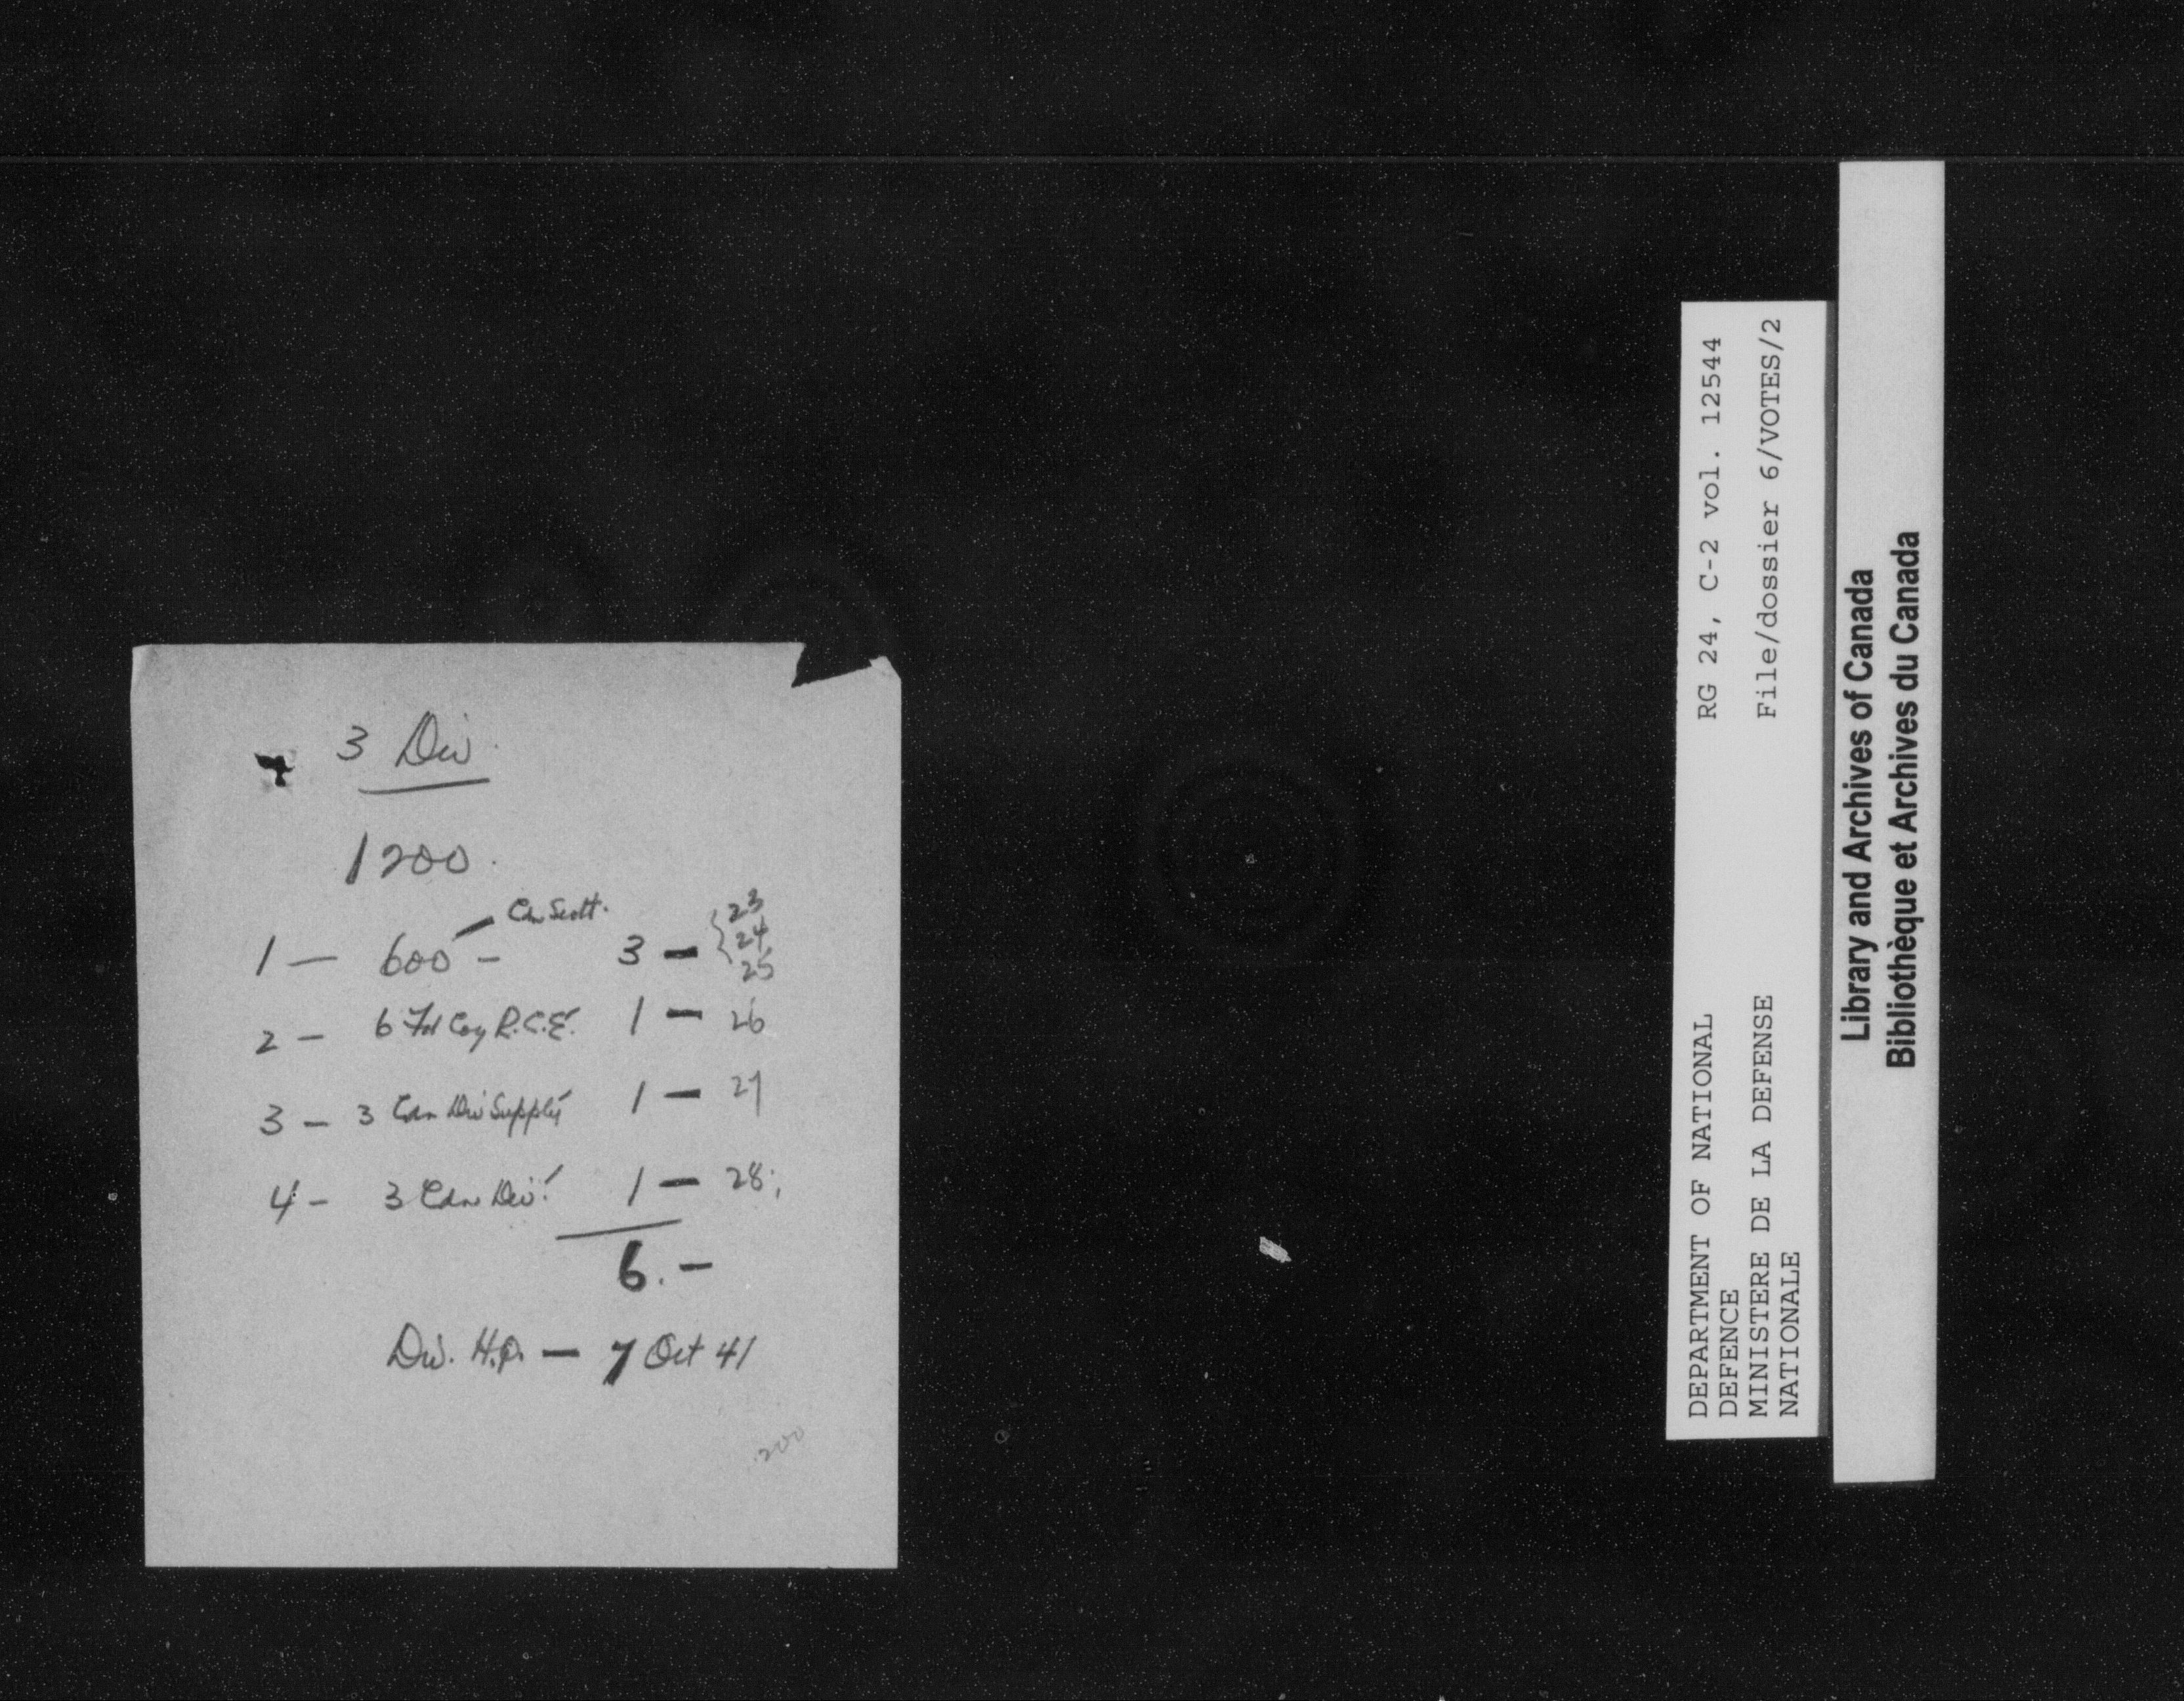 3 Div.
1200.
Cdn Scott.
1 — 600 — 3 — { 23
24
25
2 — 6 Fd Coy R.C.E. 1 — 26
3 — 3 Cdn Div Supply 1 — 27
4 — 3 Cdn Div. 1 — 28
6. —
Div. H.Q. — 7 Oct 41
200
RG 24, C-2 vol. 12544
File/dossier 6/VOTES/2
DEPARTMENT OF NATIONAL
DEFENCE
MINISTERE DE LA DEFENSE
NATIONALE
Library and Archives of Canada
Bibliothèque et Archives du Canada